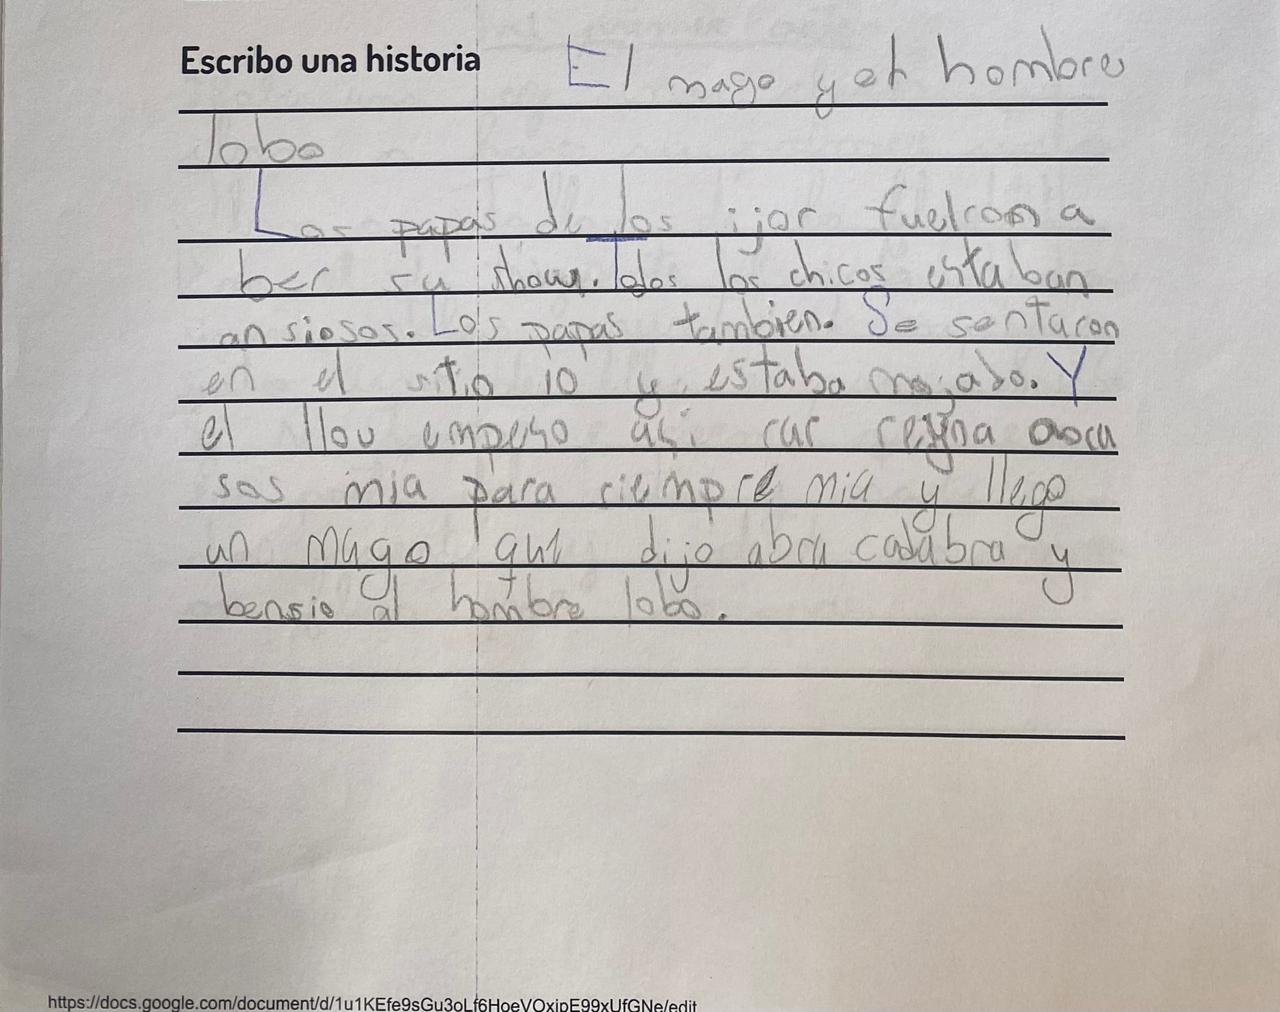 Escribo una historia El mago y el hombre
lobo
Los papas de los ijos fueron a
ber su show. Todos los chicos estaban
ansiosos. Los papas tambien. Se sentaron
en el sitio 10 y estaba mojado. Y
el llou empeso asi car reyna aora
sos mia para siempre mia y llego
un mago que dijo abra cadabra y
bensio al hombre lobo.
https://docs.google.com/document/d/1u1KEfe9sGu3oLf6HoeVOxjpE99xUfGNe/edit